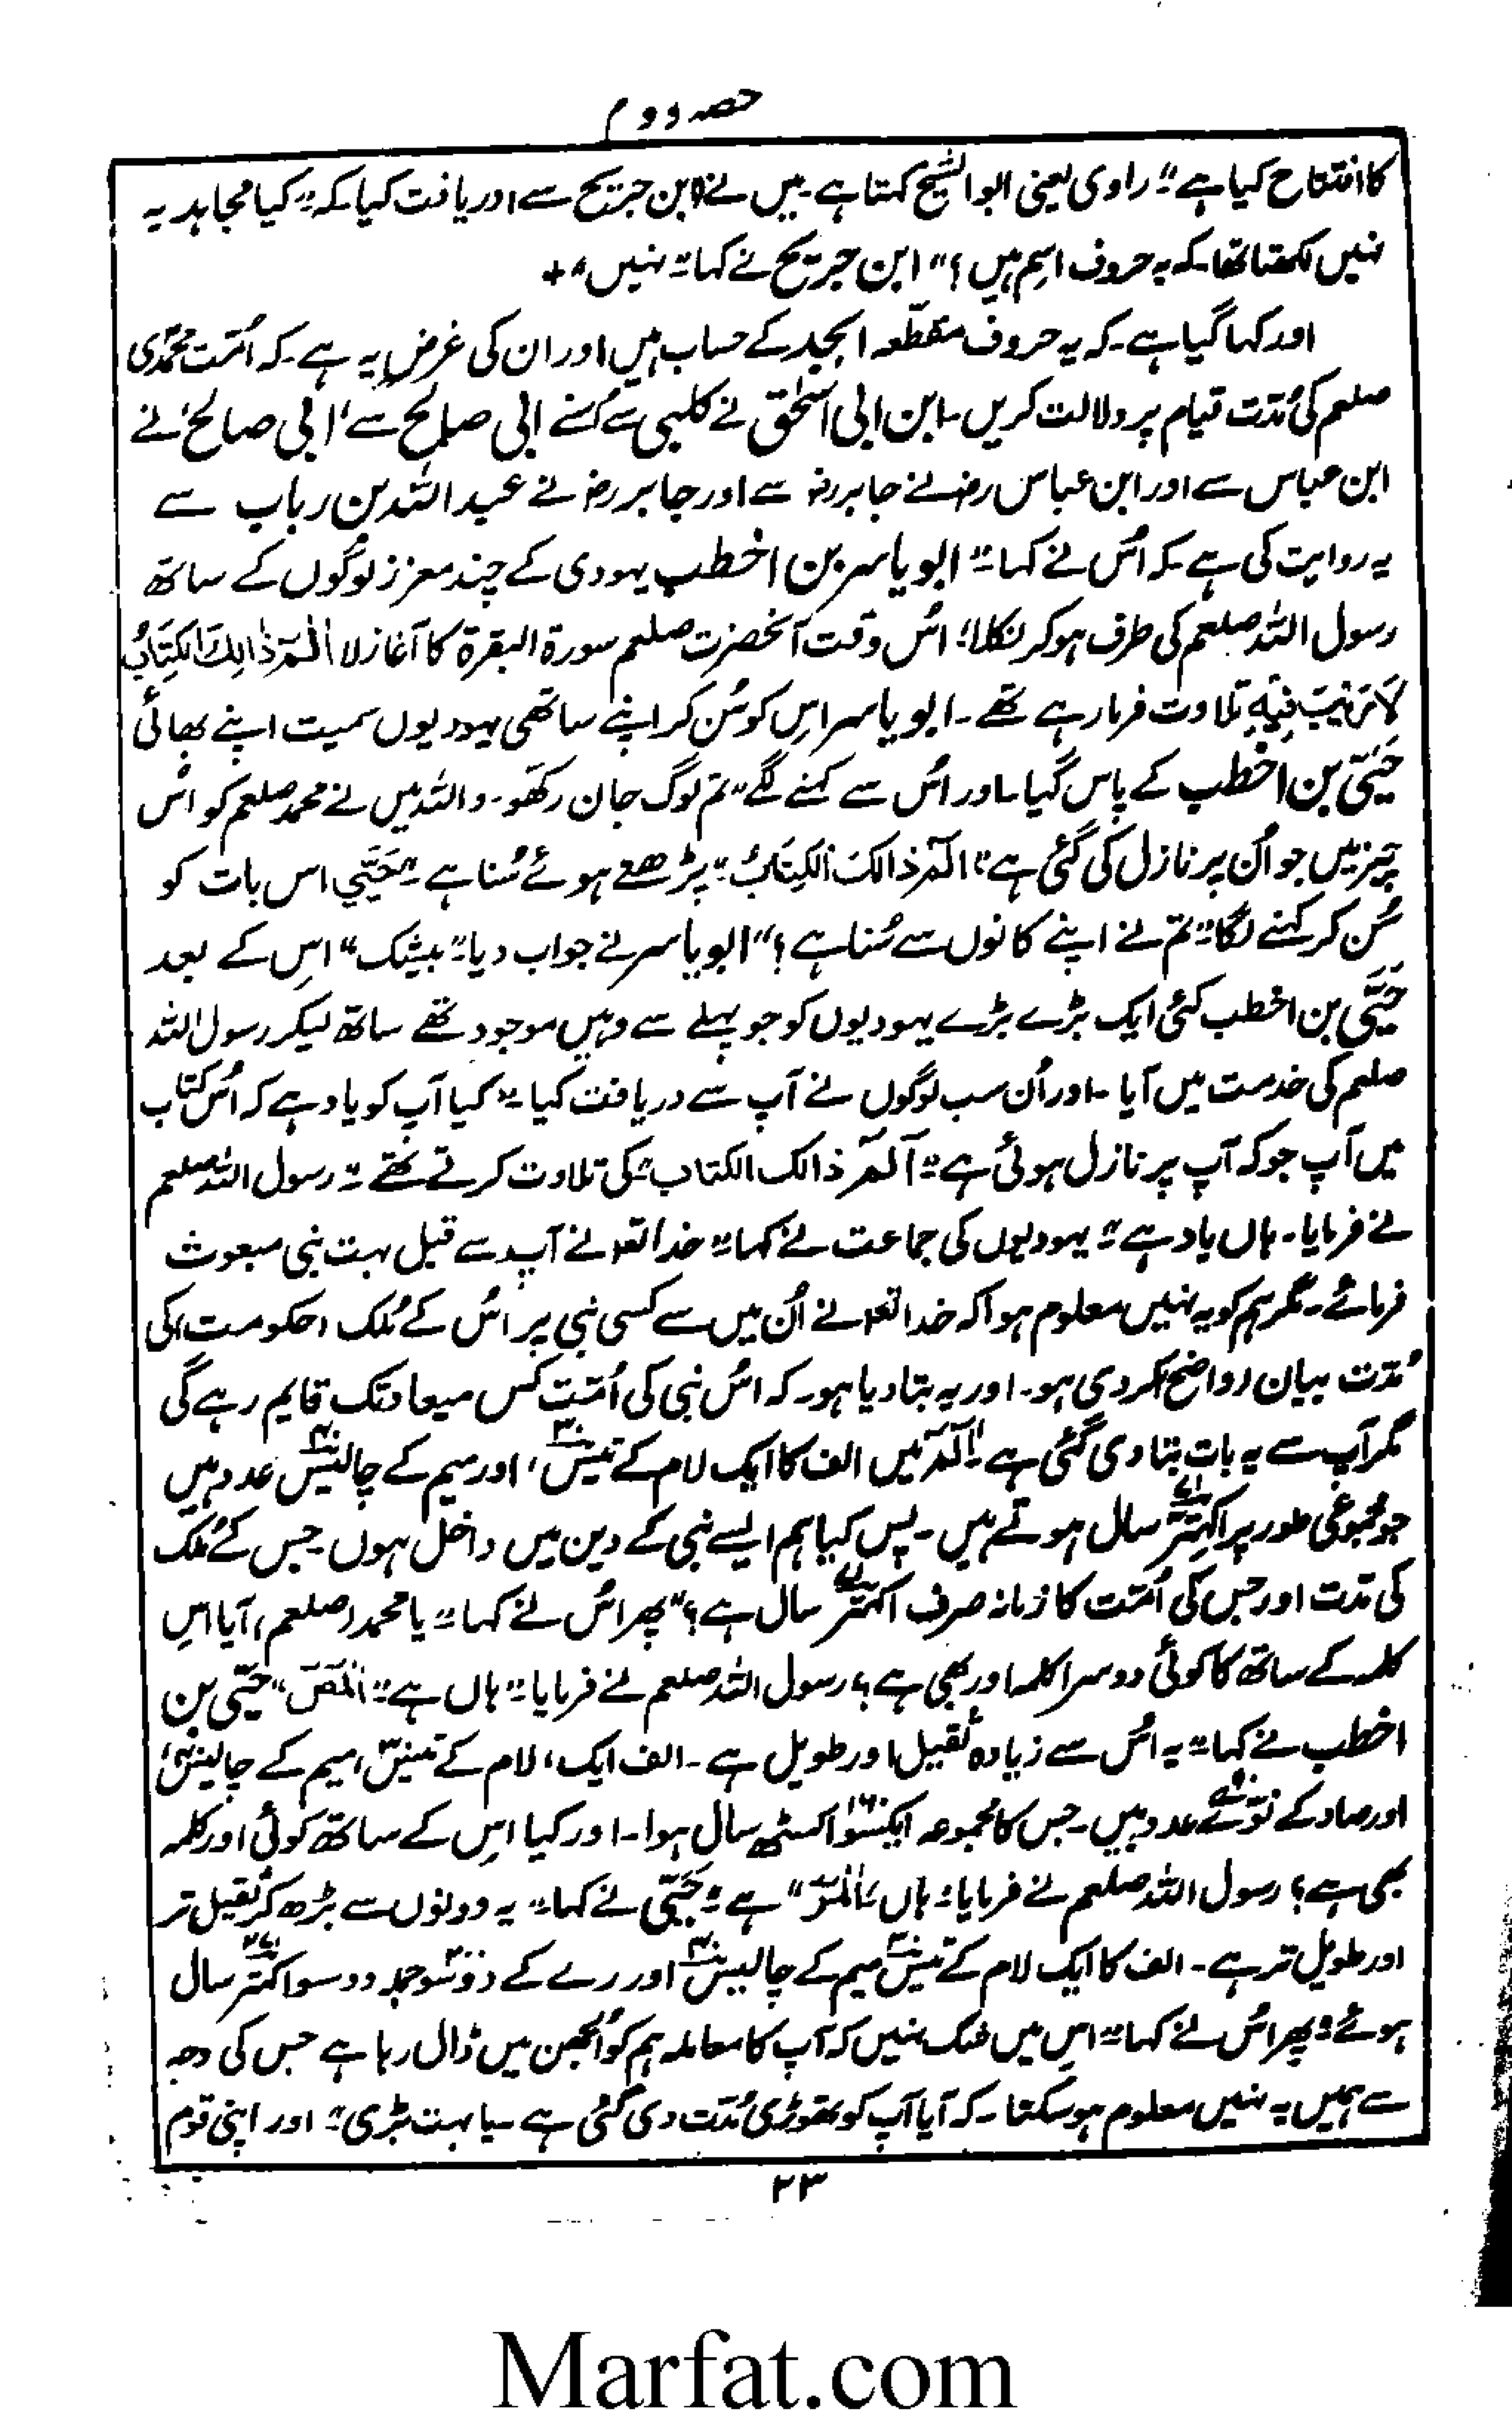 حصہ دوم
کا افتتاح کیا ہے" راوی یعنی ابوالشیخ کہتا ہے۔ میں نے (ابن جریج سے) دریافت کیا۔ کہ "کیا مجاہد یہ
نہیں کہتا تھا۔ کہ یہ حروف اسم ہیں؟" ابن جریج نے کہا "نہیں" +
اور کہا گیا ہے۔ کہ یہ حروف مقطعہ ابجد کے حساب ہیں اور ان کی غرض یہ ہے۔ کہ اُمّت محمدّی
صلعم کی مُدّت قیام پر دلالت کریں۔ ابن ابی اسحٰق نے کلبی سے اُسنے ابی صالح سے، ابی صالح نے
ابن عباس سے اور ابن عباس رضہ نے جابر رضہ سے اور جابر رضہ نے عبداللہ بن رباب سے
یہ روایت کی ہے۔ کہ اُس نے کہا "ابو یاسر بن اخطب یہودی کے چند معزز لوگوں کے ساتھ
رسول اللہ صلعم کی طرف ہو کر نکلا، اُس وقت آنحضرت صلعم سورۃ البقرۃ کا آغاز لا الٓمّٓ ذٰالِكَ الْكِتَابُ
لَا رَيْبَ فِيْهِ تلاوت فرما رہے تھے۔ ابو یاسر اِس کو سُن کر اپنے ساتھی یہودیوں سمیت اپنے بھائی
حَیَیّ بن اخطب کے پاس گیا۔ اور اُس سے کہنے لگے "تم لوگ جان رکھو۔ واللہ میں نے محمد صلعم کو اُس
چیز میں جو اُن پر نازل کی گئی ہے" الٓمّٓ ذالکَ الکِتَابُ" پڑھتے ہوئے سُنا ہے" حَیَیّ اس بات کو
سُن کر کہنے لگا "تم نے اپنے کانوں سے سُنا ہے؟" ابو یاسر نے جواب دیا "بیشک" اِس کے بعد
حَیَیّ بن اخطب کئی ایک بڑے بڑے یہودیوں کو جو پہلے سے وہیں موجود تھے ساتھ لیکر رسول اللہ
صلعم کی خدمت میں آیا۔ اور اُن سب لوگوں نے آپ سے دریافت کیا "کیا آپ کو یاد ہے کہ اُس کتاب
میں آپ جو کہ آپ پر نازل ہوئی ہے "آلٓمّٓ ذالک الکتاب" کی تلاوت کرتے تھے" رسول اللہ صلعم
نے فرمایا۔ ہاں یاد ہے" یہودیوں کی جماعت نے کہا "خدا تعہ نے آپ سے قبل بہت نبی مبعوث
فرمائے۔ مگر ہم کو یہ نہیں معلوم ہوا کہ خدا تعہ نے اُن میں سے کسی نبی پر اُس کے مُلک (حکومت) کی
مُدّت بیان (واضح) کر دی ہو۔ اور یہ بتا دیا ہو۔ کہ اُس نبی کی اُمّت کس میعاد تک قایم رہے گی
مگر آپ سے یہ بات بتا دی گئی ہے "الٓمّٓ میں الف کا ایک لام کے تیس ۳۰، اور میم کے چالیس ۴۰ عدد ہیں
جو مجموعی طور پر اکہتّر ۷۱ سال ہوتے ہیں۔ پس کیا ہم ایسے نبی کے دین میں داخل ہوں۔ جس کے مُلک
کی مدّت اور جس کی اُمّت کا زمانہ صرف اکہتّر ۷۱ سال ہے؟" پھر اُس نے کہا "یا محمد (صلعم) آیا اِس
کلمہ کے ساتھ کا کوئی دوسرا کلمہ اور بھی ہے؟ رسول اللہ صلعم نے فرمایا "ہاں ہے" الٓمّٓصٓ" حَیَیّ بن
اخطب نے کہا "یہ اُس سے زیادہ ثقیل اور طویل ہے۔ الف ایک، لام کے تیس ۳۰، میم کے چالیس ۴۰،
اور صاد کے نوّے ۹۰ عدد ہیں۔ جس کا مجموعہ ایکسو اکسٹھ ۱۶۱ سال ہوا۔ اور کیا اِس کے ساتھ کوئی اور کلمہ
بھی ہے؟ رسول اللہ صلعم نے فرمایا "ہاں "الٓمّٓرٰ" ہے" حَیَیّ نے کہا "یہ دونوں سے بڑھ کر ثقیل تر
اور طویل تر ہے۔ الف کا ایک لام کے تیس ۳۰ میم کے چالیس ۴۰ اور رے کے دو سو ۲۰۰ جملہ دو سو اکہتّر ۲۷۱ سال
ہوئے" پھر اُس نے کہا "اِس میں شک نہیں کہ آپ کا معاملہ ہم کو اُلجھن میں ڈال رہا ہے جس کی وجہ
سے ہمیں یہ نہیں معلوم ہو سکتا۔ کہ آیا آپ کو تھوڑی مُدّت دی گئی ہے۔ یا بہت بڑی" اور اپنی قوم
۲۳
Marfat.com